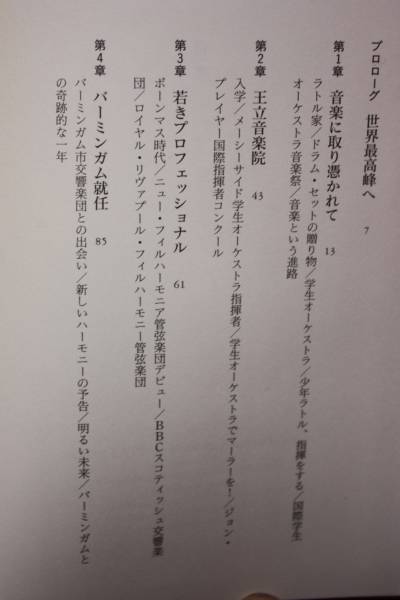 プロローグ 世界最高峰へ 7
第1章 音楽に取り憑かれて 13
ラトル家/ドラム・セットの贈り物/学生オーケストラ/少年ラトル、指揮をする/国際学生
オーケストラ音楽祭/音楽という進路
第2章 王立音楽院 43
入学/メーシーサイド学生オーケストラ指揮者/学生オーケストラでマーラーを!/ジョン・
プレイヤー国際指揮者コンクール
第3章 若きプロフェッショナル 61
ボーンマス時代/ニュー・フィルハーモニア管弦楽団デビュー/BBCスコティッシュ交響楽
団/ロイヤル・リヴァプール・フィルハーモニー管弦楽団
第4章 バーミンガム就任 85
バーミンガム市交響楽団との出会い/新しいハーモニーの予告/明るい未来/バーミンガムと
の奇跡的な一年